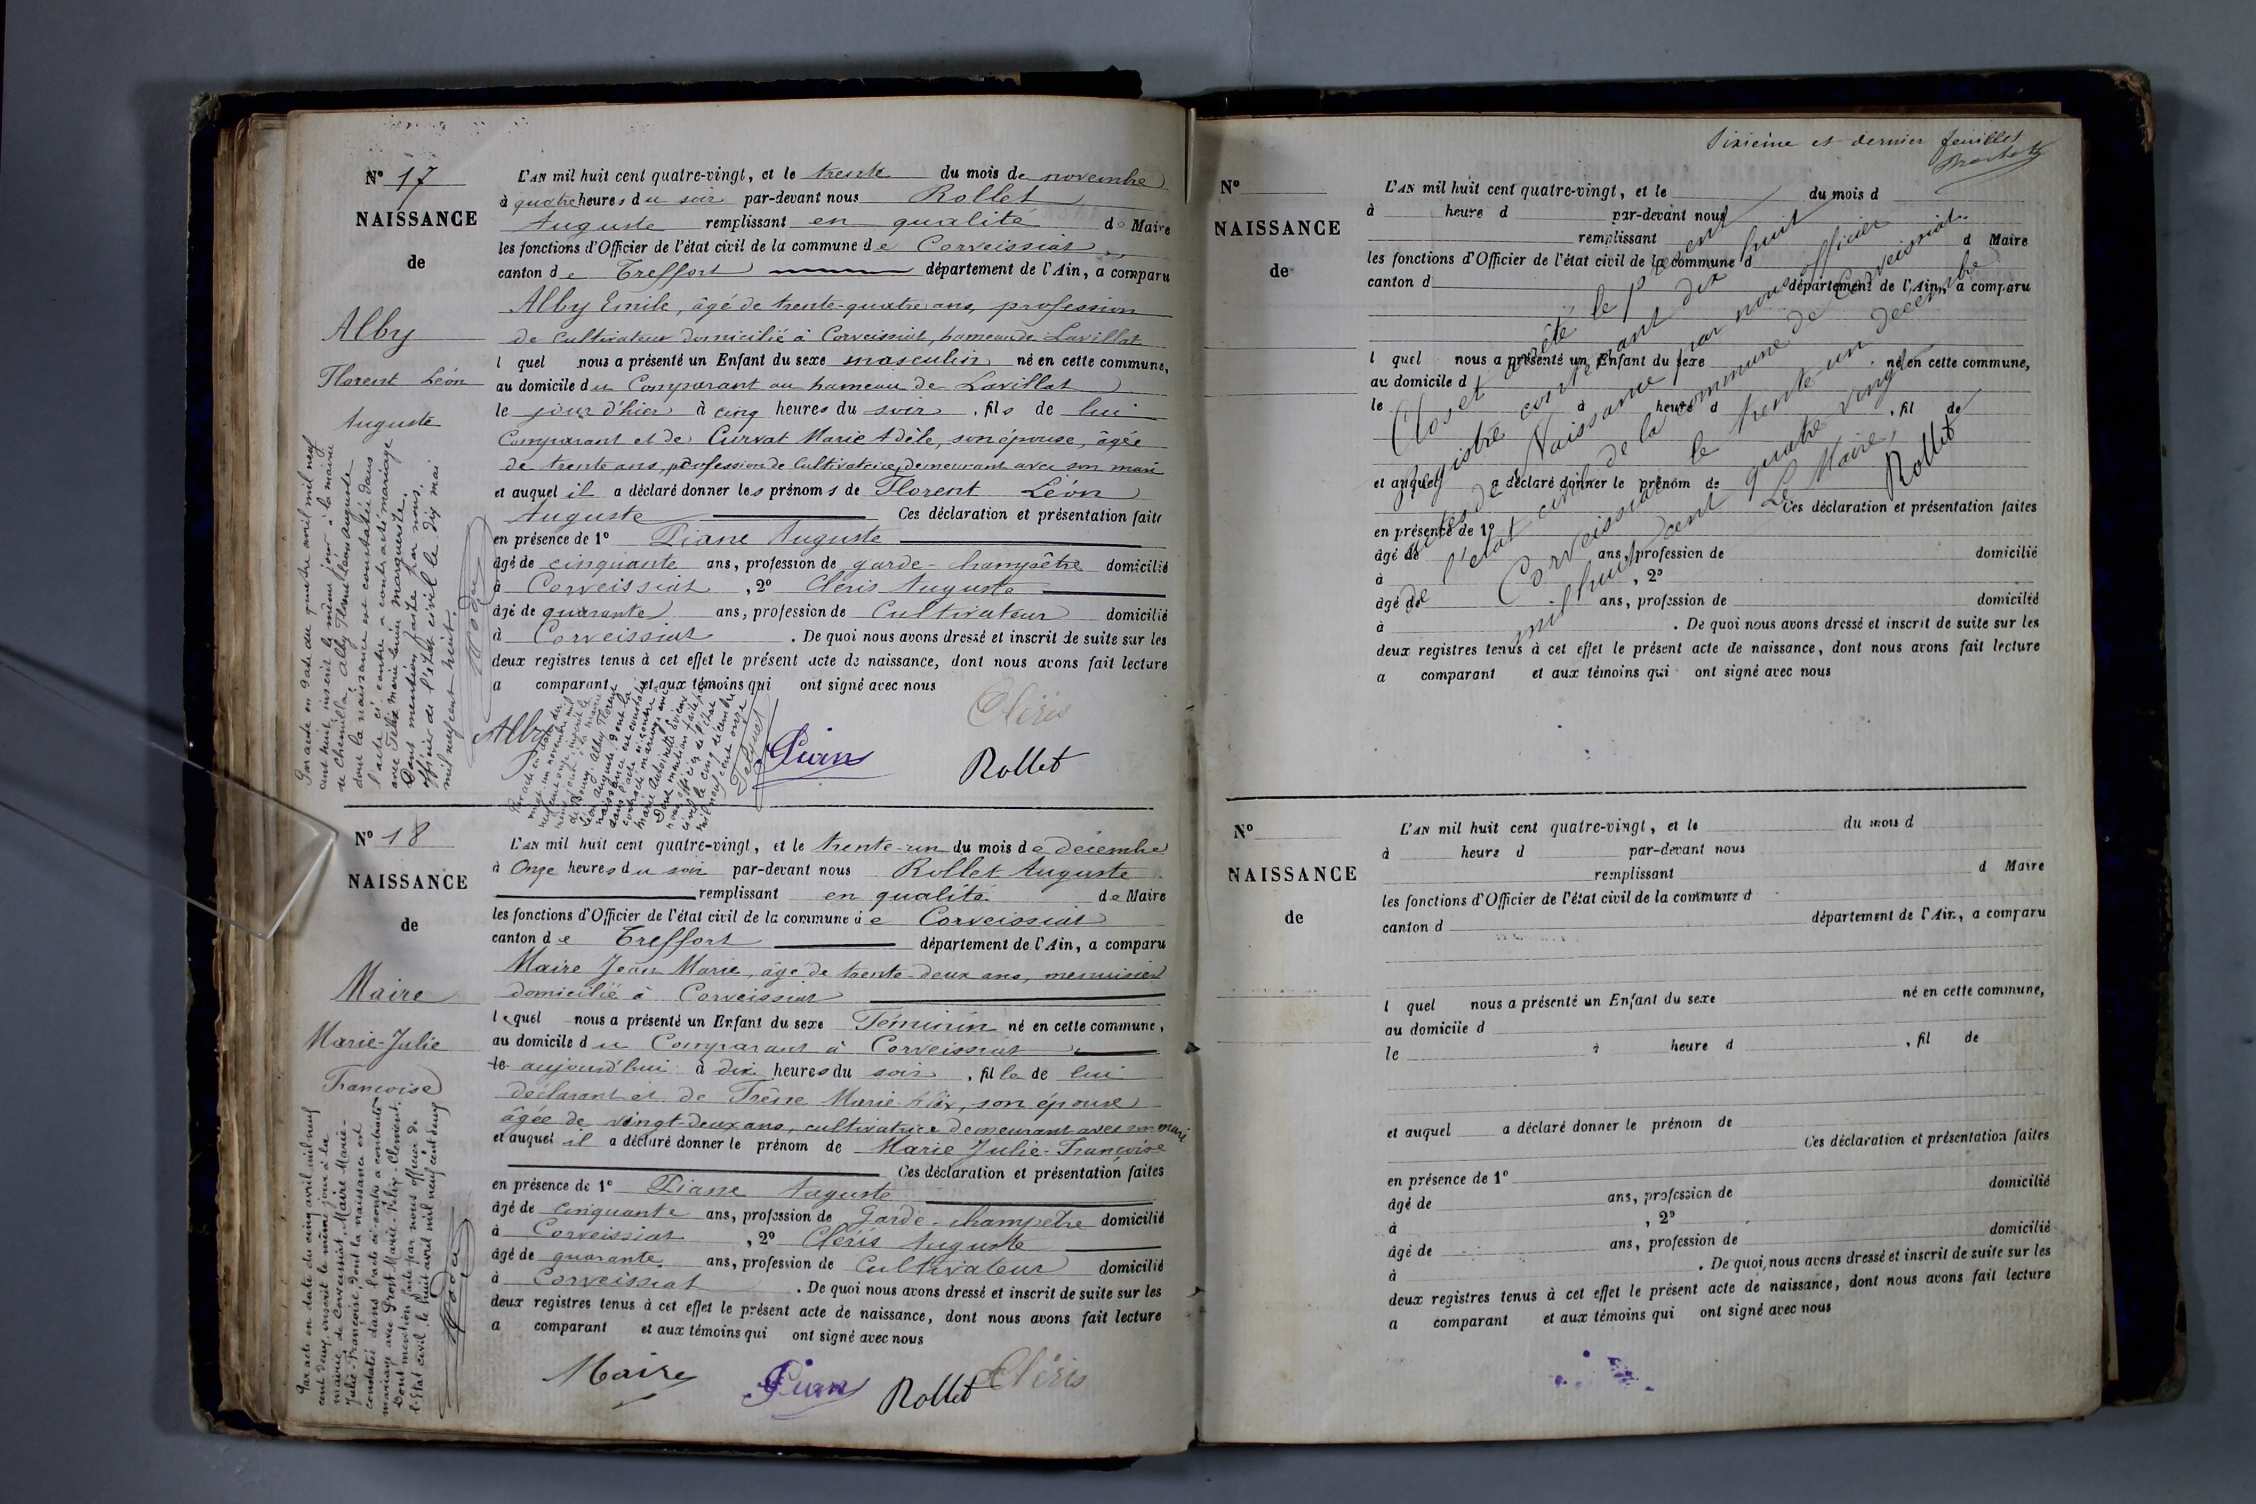 N° 17
NAISSANCE
de
Alby
Florent Léon
Auguste
L'AN mil huit cent quatre-vingt, et le trente du mois de novembre
à quatre heures du soir par-devant nous Rollet
Auguste remplissant en qualité de Maire
les fonctions d'Officier de l'état civil de la commune de Corveissiat
canton de Treffort département de l'Ain, a comparu
Alby Emile, âgé de trente-quatre ans, profession
de cultivateur domicilié à Corveissiat, hameau de Lavillat
l quel nous a présenté un Enfant du sexe masculin né en cette commune,
au domicile du Comparant au hameau de Lavillat
le jour d'hier à cinq heures du soir, fils de lui
Comparant et de Curvat Marie Adèle, son épouse, âgée
de trente ans, profession de Cultivatrice, demeurant avec son mari
et auquel il a déclaré donner les prénoms de Florent Léon
Auguste Ces déclaration et présentation faite
en présence de 1° Piane Auguste
âgé de cinquante ans, profession de garde-champêtre domicilié
à Corveissiat, 2° Cléris Auguste
âgé de quarante ans, profession de Cultivateur domicilié
à Corveissiat. De quoi nous avons dressé et inscrit de suite sur les
deux registres tenus à cet effet le présent acte de naissance, dont nous avons fait lecture
a comparant et aux témoins qui ont signé avec nous
Alby
Cléris
Rollet
Par acte en date du quatre avril mil neuf
cent huit, inscrit le même jour à la mairie
de Chemilla, Alby Florent Léon Auguste
dont la naissance est constatée dans
l'acte ci contre a contracté mariage
avec Felix Marie Louise Marguerite.
Dont mention faite par nous,
officier de l'état civil le dix mai
mil neuf cent huit.
Par acte en date du
vingt un novembre mil
neuf cent onze, inscrit le
même jour à la mairie
de Bourg, Alby Florent
Léon Auguste, dont la
naissance est constatée
dans l'acte ci contre a
contracté mariage avec
Marie Antoinette
Dont mention faite par
nous officier de l'état
civil le cinq décembre
mil neuf cent onze
N° 18
NAISSANCE
de
Maire
Marie-Julie
Françoise
L'AN mil huit cent quatre-vingt, et le trente-un du mois de décembre
à Onze heures du soir par-devant nous Rollet Auguste
remplissant en qualité de Maire
les fonctions d'Officier de l'état civil de la commune de Corveissiat
canton de Treffort département de l'Ain, a comparu
Maire Jean Marie, âgé de trente-deux ans, menuisier
domicilié à Corveissiat
lequel nous a présenté un Enfant du sexe Féminin né en cette commune,
au domicile du Comparant à Corveissiat
le aujourd'hui à dix heures du soir, fille de lui
déclarant et de Frêne Marie, son épouse
âgée de vingt-deux ans, cultivatrice demeurant avec son mari
et auquel il a déclaré donner le prénom de Marie Julie-Françoise
Ces déclaration et présentation faites
en présence de 1° Piane Auguste
âgé de cinquante ans, profession de Garde-champêtre domicilié
à Corveissiat, 2° Cléris Auguste
âgé de quarante ans, profession de Cultivateur domicilié
à Corveissiat. De quoi nous avons dressé et inscrit de suite sur les
deux registres tenus à cet effet le présent acte de naissance, dont nous avons fait lecture
a comparant et aux témoins qui ont signé avec nous
Maire
Rollet
Cléris
Par acte en date du cinq avril mil neuf
cent deux, inscrit le même jour à la
mairie de Corveissiat, Maire Marie-
Julie-Françoise, dont la naissance est
constatée dans l'acte ci-contre a contracté
mariage avec Marie-Félix-Clément.
Dont mention faite par nous officier de
l'Etat civil le huit avril mil neuf cent deux
Dixième et dernier feuillet
N°
NAISSANCE
de
L'AN mil huit cent quatre-vingt, et le du mois d
à heure d par-devant nous
remplissant d Maire
les fonctions d'Officier de l'état civil de la commune d
canton d département de l'Ain, a comparu
l quel nous a présenté un Enfant du sexe né en cette commune,
au domicile d
le à heure d, fil de
et auquel a déclaré donner le prénom de
Ces déclaration et présentation faites
en présence de 1°
âgé de ans, profession de domicilié
à, 2°
âgé de ans, profession de domicilié
à. De quoi nous avons dressé et inscrit de suite sur les
deux registres tenus à cet effet le présent acte de naissance, dont nous avons fait lecture
a comparant et aux témoins qui ont signé avec nous
Clos et arrêté le présent
registre contenant dix huit
actes de Naissance par nous officier
de l'état civil de la commune de Corveissiat.
Corveissiat le trente-un décembre
mil huit cent quatre vingt
Le Maire,
Rollet
N°
NAISSANCE
de
L'AN mil huit cent quatre-vingt, et le du mois d
à heure d par-devant nous
remplissant d Maire
les fonctions d'Officier de l'état civil de la commune d
canton d département de l'Ain, a comparu
l quel nous a présenté un Enfant du sexe né en cette commune,
au domicile d
le à heure d, fil de
et auquel a déclaré donner le prénom de
Ces déclaration et présentation faites
en présence de 1°
âgé de ans, profession de domicilié
à, 2°
âgé de ans, profession de domicilié
à. De quoi nous avons dressé et inscrit de suite sur les
deux registres tenus à cet effet le présent acte de naissance, dont nous avons fait lecture
a comparant et aux témoins qui ont signé avec nous